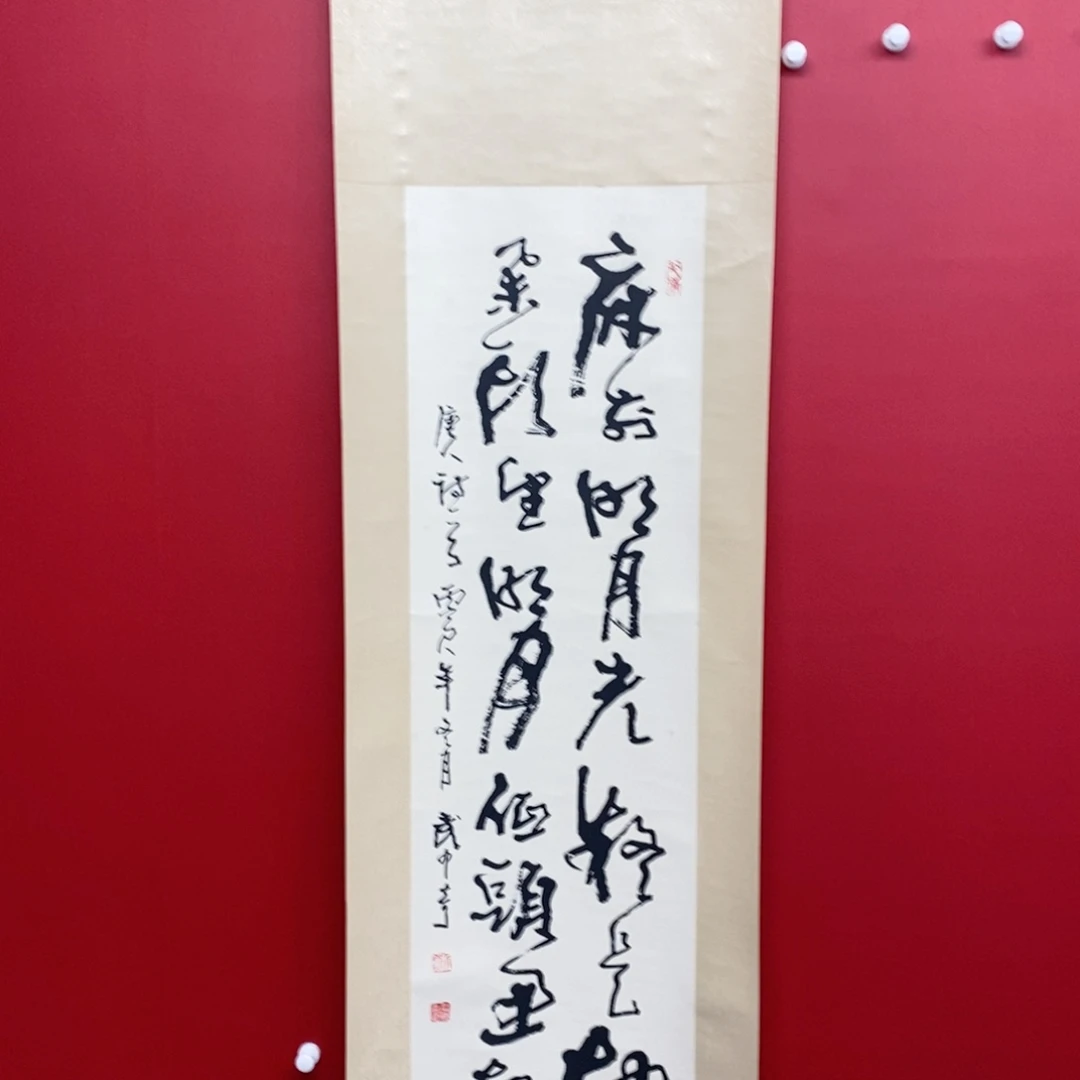 床前明月光疑是地
舉頭望明月低頭思
唐人詩一首 丙寅年冬月 武中奇